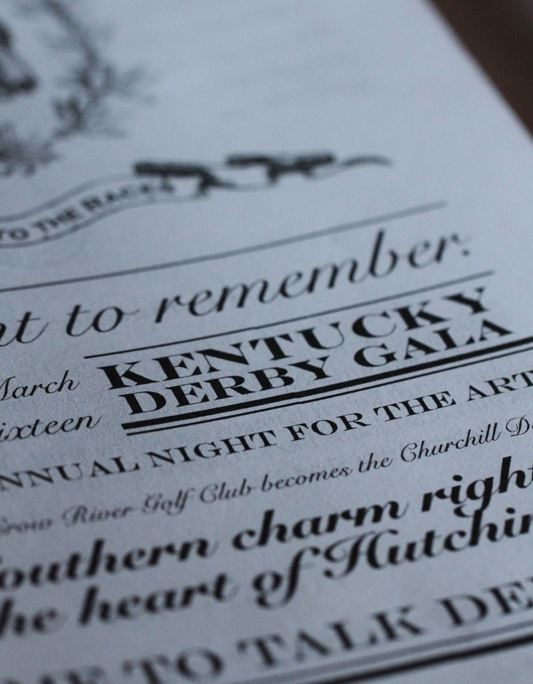 TO THE RACES
to remember.
March
KENTUCKY
sixteen
DERBY GALA
ANNUAL NIGHT FOR THE ART
Crow River Golf Club becomes the Churchill D
Southern charm right
the heart of Hutchin
TO TALK DE